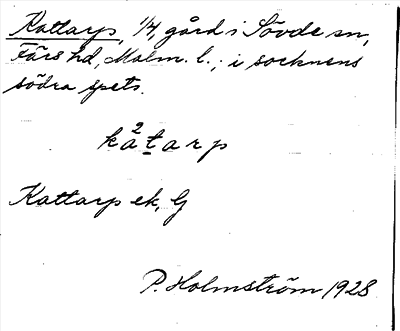 Kattarp, 1/4, gård i Sövde sn,
Färs hd, Malm. l.; i socknens
södra spets.
ka²tarp
Kattarp ek, G
P. Holmström 1928